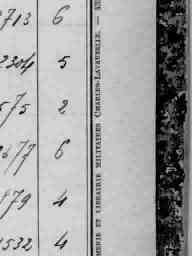 2713 6
2304 5
575 2
2677 6
179 4
1532 4
MERIE ET LIBRAIRIE MILITAIRES CHARLES-LAVAUZELLE. —